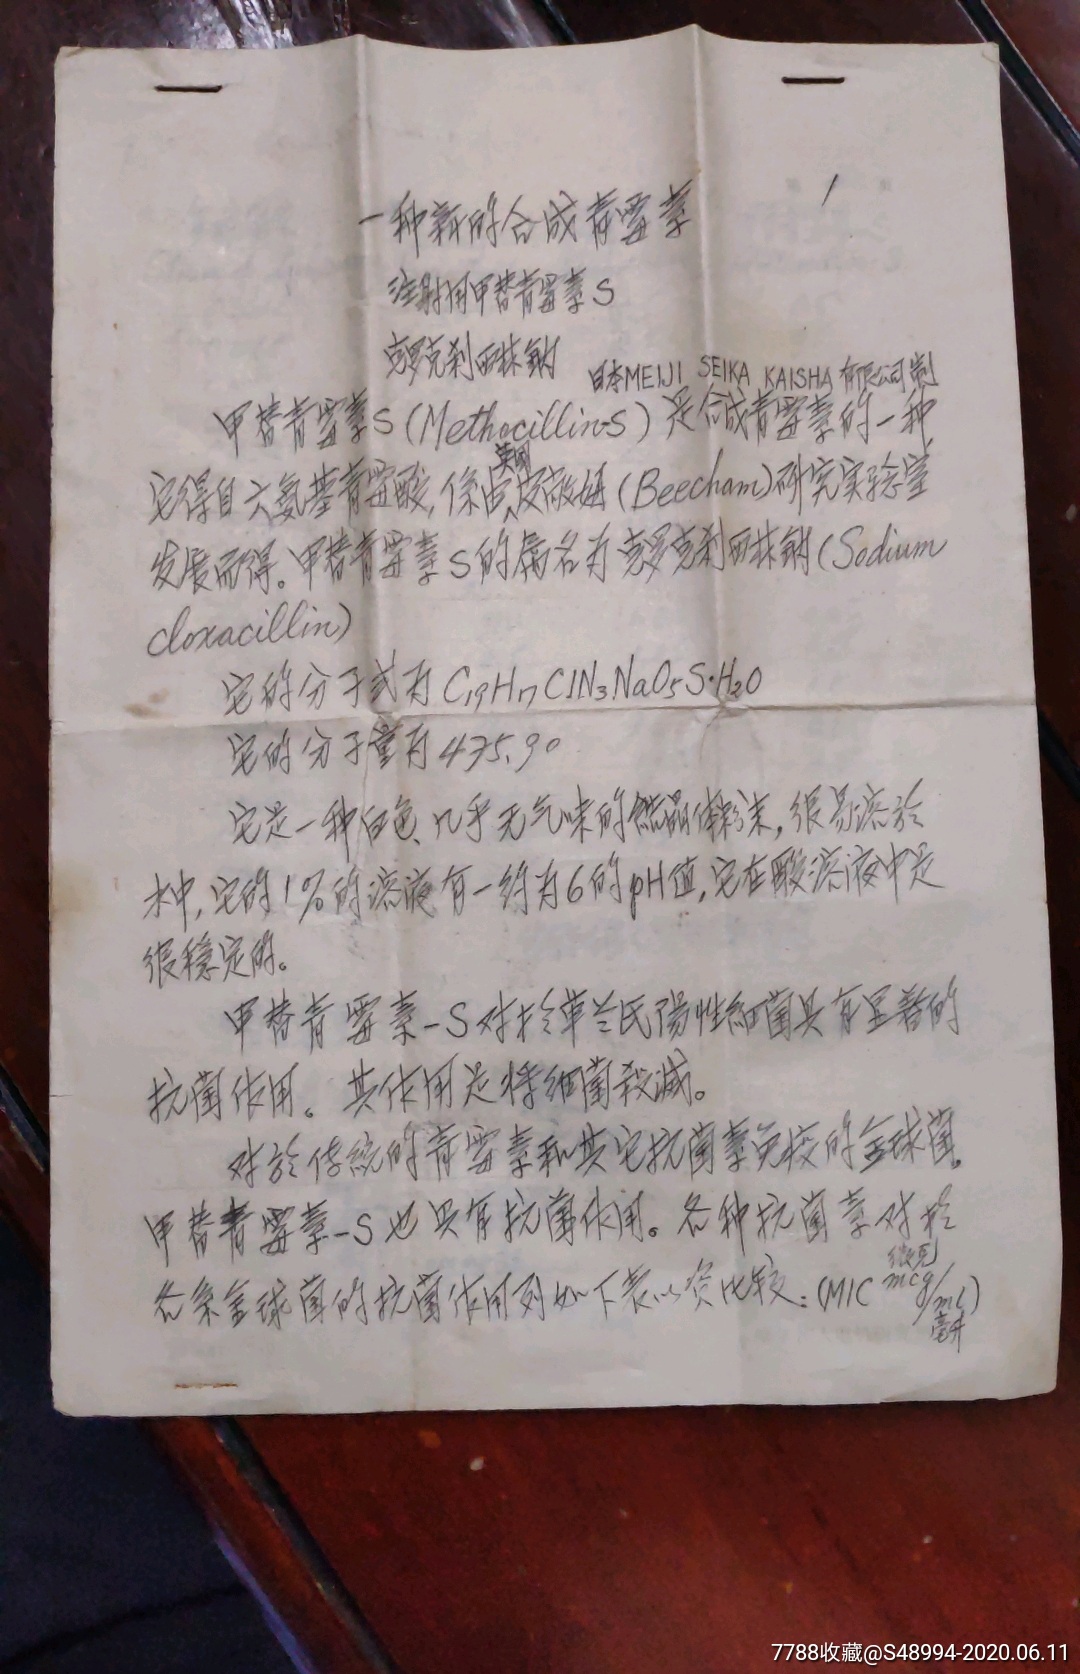 1
一种新的合成青霉素
注射用甲替青霉素S
克罗克利西林鈉
日本MEIJI SEIKA KAISHA 有限公司制
甲替青霉素S(Methocillin-S)是合成青霉素的一种
它得自六氨基青霉酸,係由英国皮敞姆(Beecham)研究实验室
发展而得。甲替青霉素S的属名为克罗克利西林鈉(Sodium
cloxacillin)
它的分子式为C19H17ClN3NaO5S·H2O
它的分子量为475.90
它是一种白色、几乎无气味的結晶体粉末,很易溶於
水中,它的1%的溶液有一约为6的pH值,它在酸溶液中是
很穩定的。
甲替青霉素-S对於革兰氏陽性細菌具有显著的
抗菌作用。其作用是将细菌殺滅。
对於传統的青霉素和其它抗菌素免疫的金球菌,
甲替青霉素-S也具有抗菌作用。各种抗菌素对於
各条金球菌的抗菌作用列如下表以资比较:(MIC 微克mcg/ml毫升)
7788收藏@S48994-2020.06.11